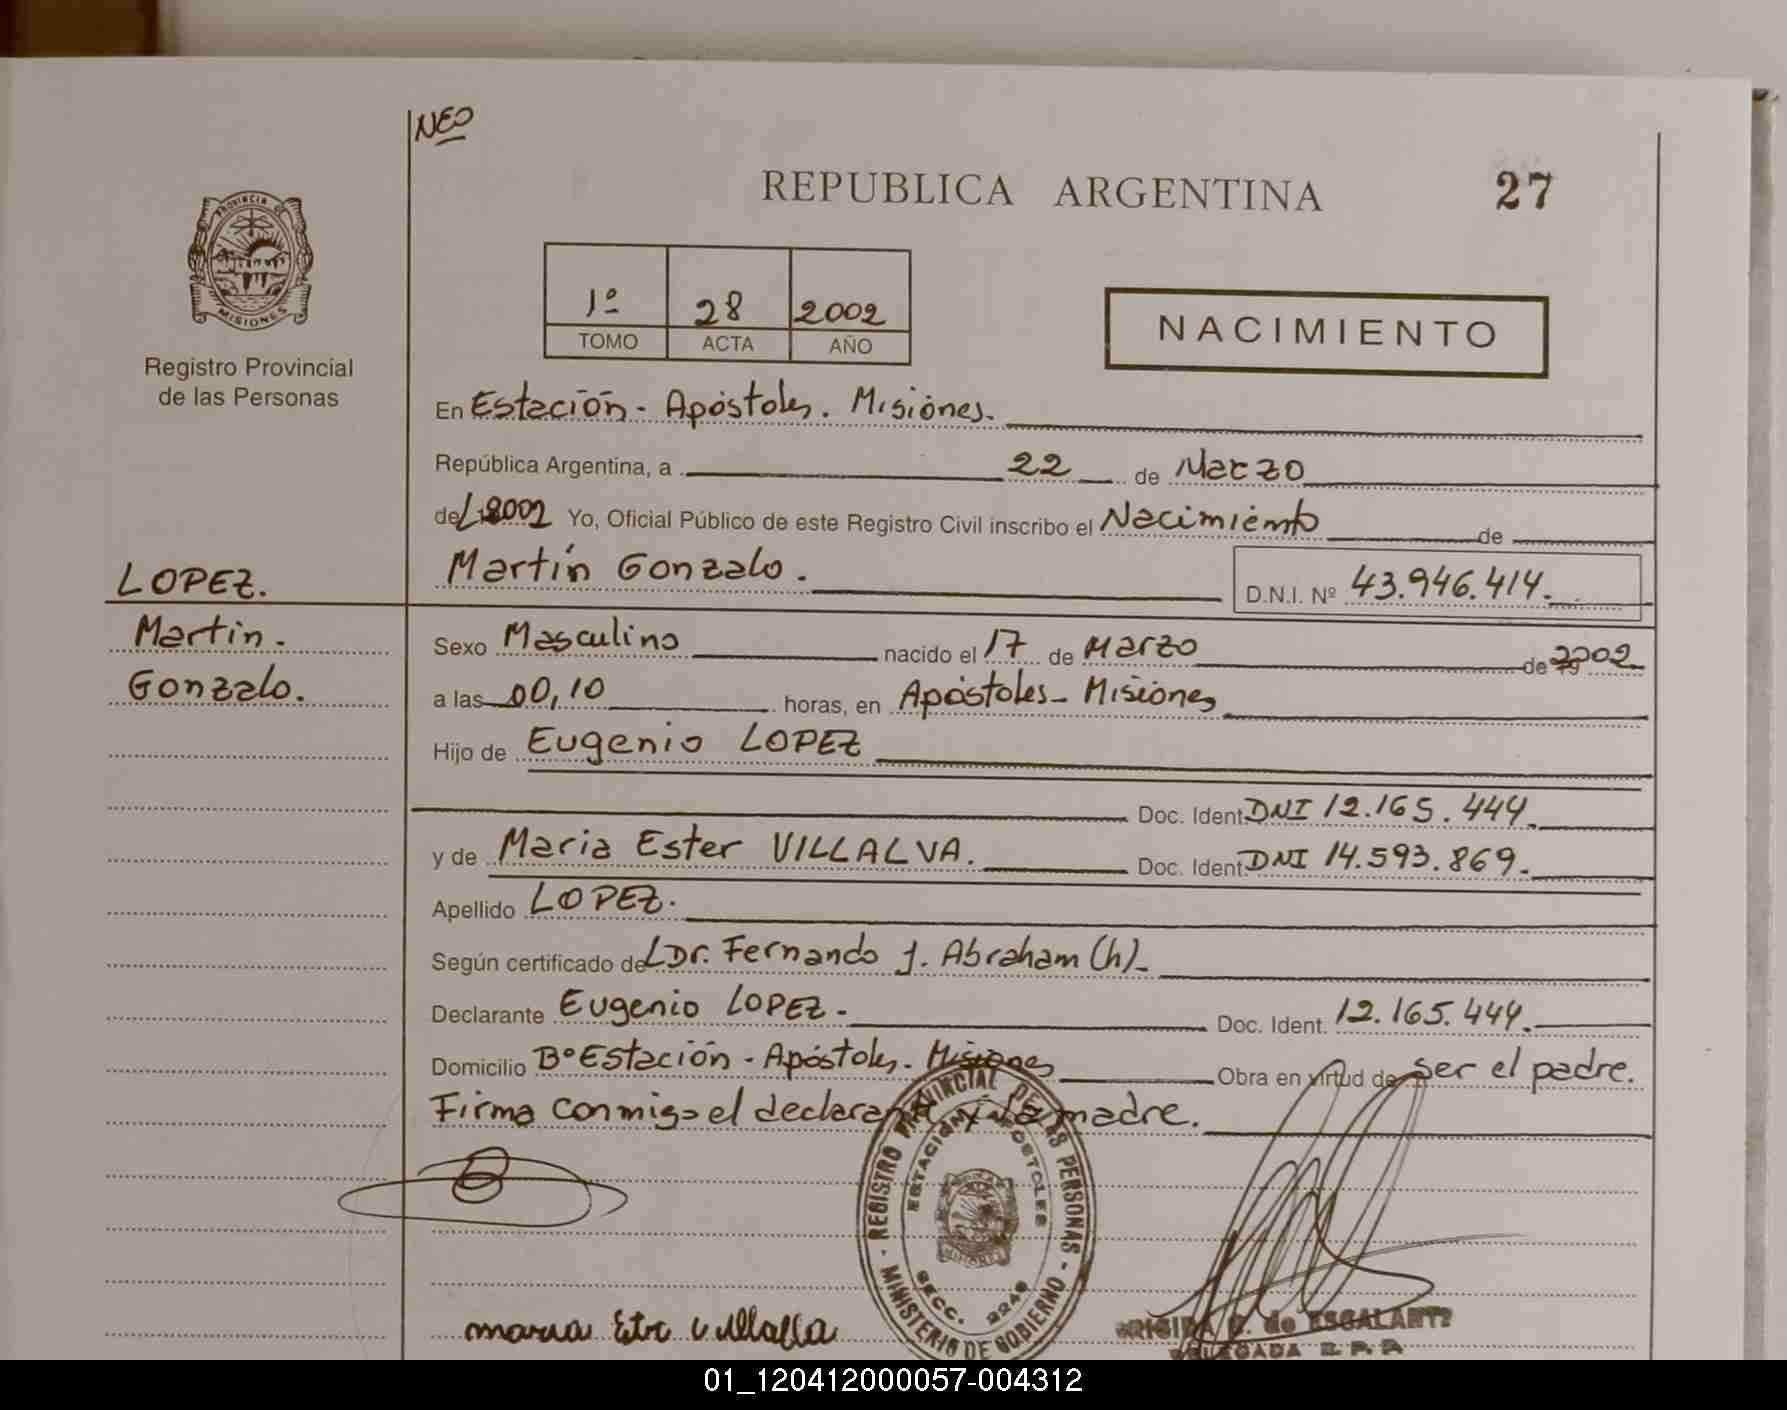 NEO
REPUBLICA ARGENTINA
27
PROVINCIA DE
MISIONES
Registro Provincial
de las Personas
1º 28 2002
TOMO ACTA AÑO
NACIMIENTO
En Estación - Apóstoles. Misiones.
República Argentina, a 22 de Marzo
del 2002 Yo, Oficial Público de este Registro Civil inscribo el Nacimiento de
Martín Gonzalo.
D.N.I. Nº 43.946.414.
LOPEZ.
Martin.
Gonzalo.
Sexo Masculino nacido el 17 de Marzo de 2002
a las 00,10 horas, en Apóstoles - Misiones
Hijo de Eugenio LOPEZ
Doc. Ident. DNI 12.165.444.
y de Maria Ester VILLALVA. Doc. Ident. DNI 14.593.869.
Apellido LOPEZ.
Según certificado del Dr. Fernando J. Abraham (h)
Declarante Eugenio LOPEZ. Doc. Ident. 12.165.444.
Domicilio Bº Estación - Apóstoles. Misiones Obra en virtud de ser el padre.
Firma conmigo el declarante y la madre.
REGISTRO PROVINCIAL DE LAS PERSONAS - MINISTERIO DE GOBIERNO -
ESTACIÓN APOSTOLES
SECC. 2248
MISIONES
maria Ester villalba
de ESCALANTE
DELEGADA R. P. P.
01_120412000057-004312